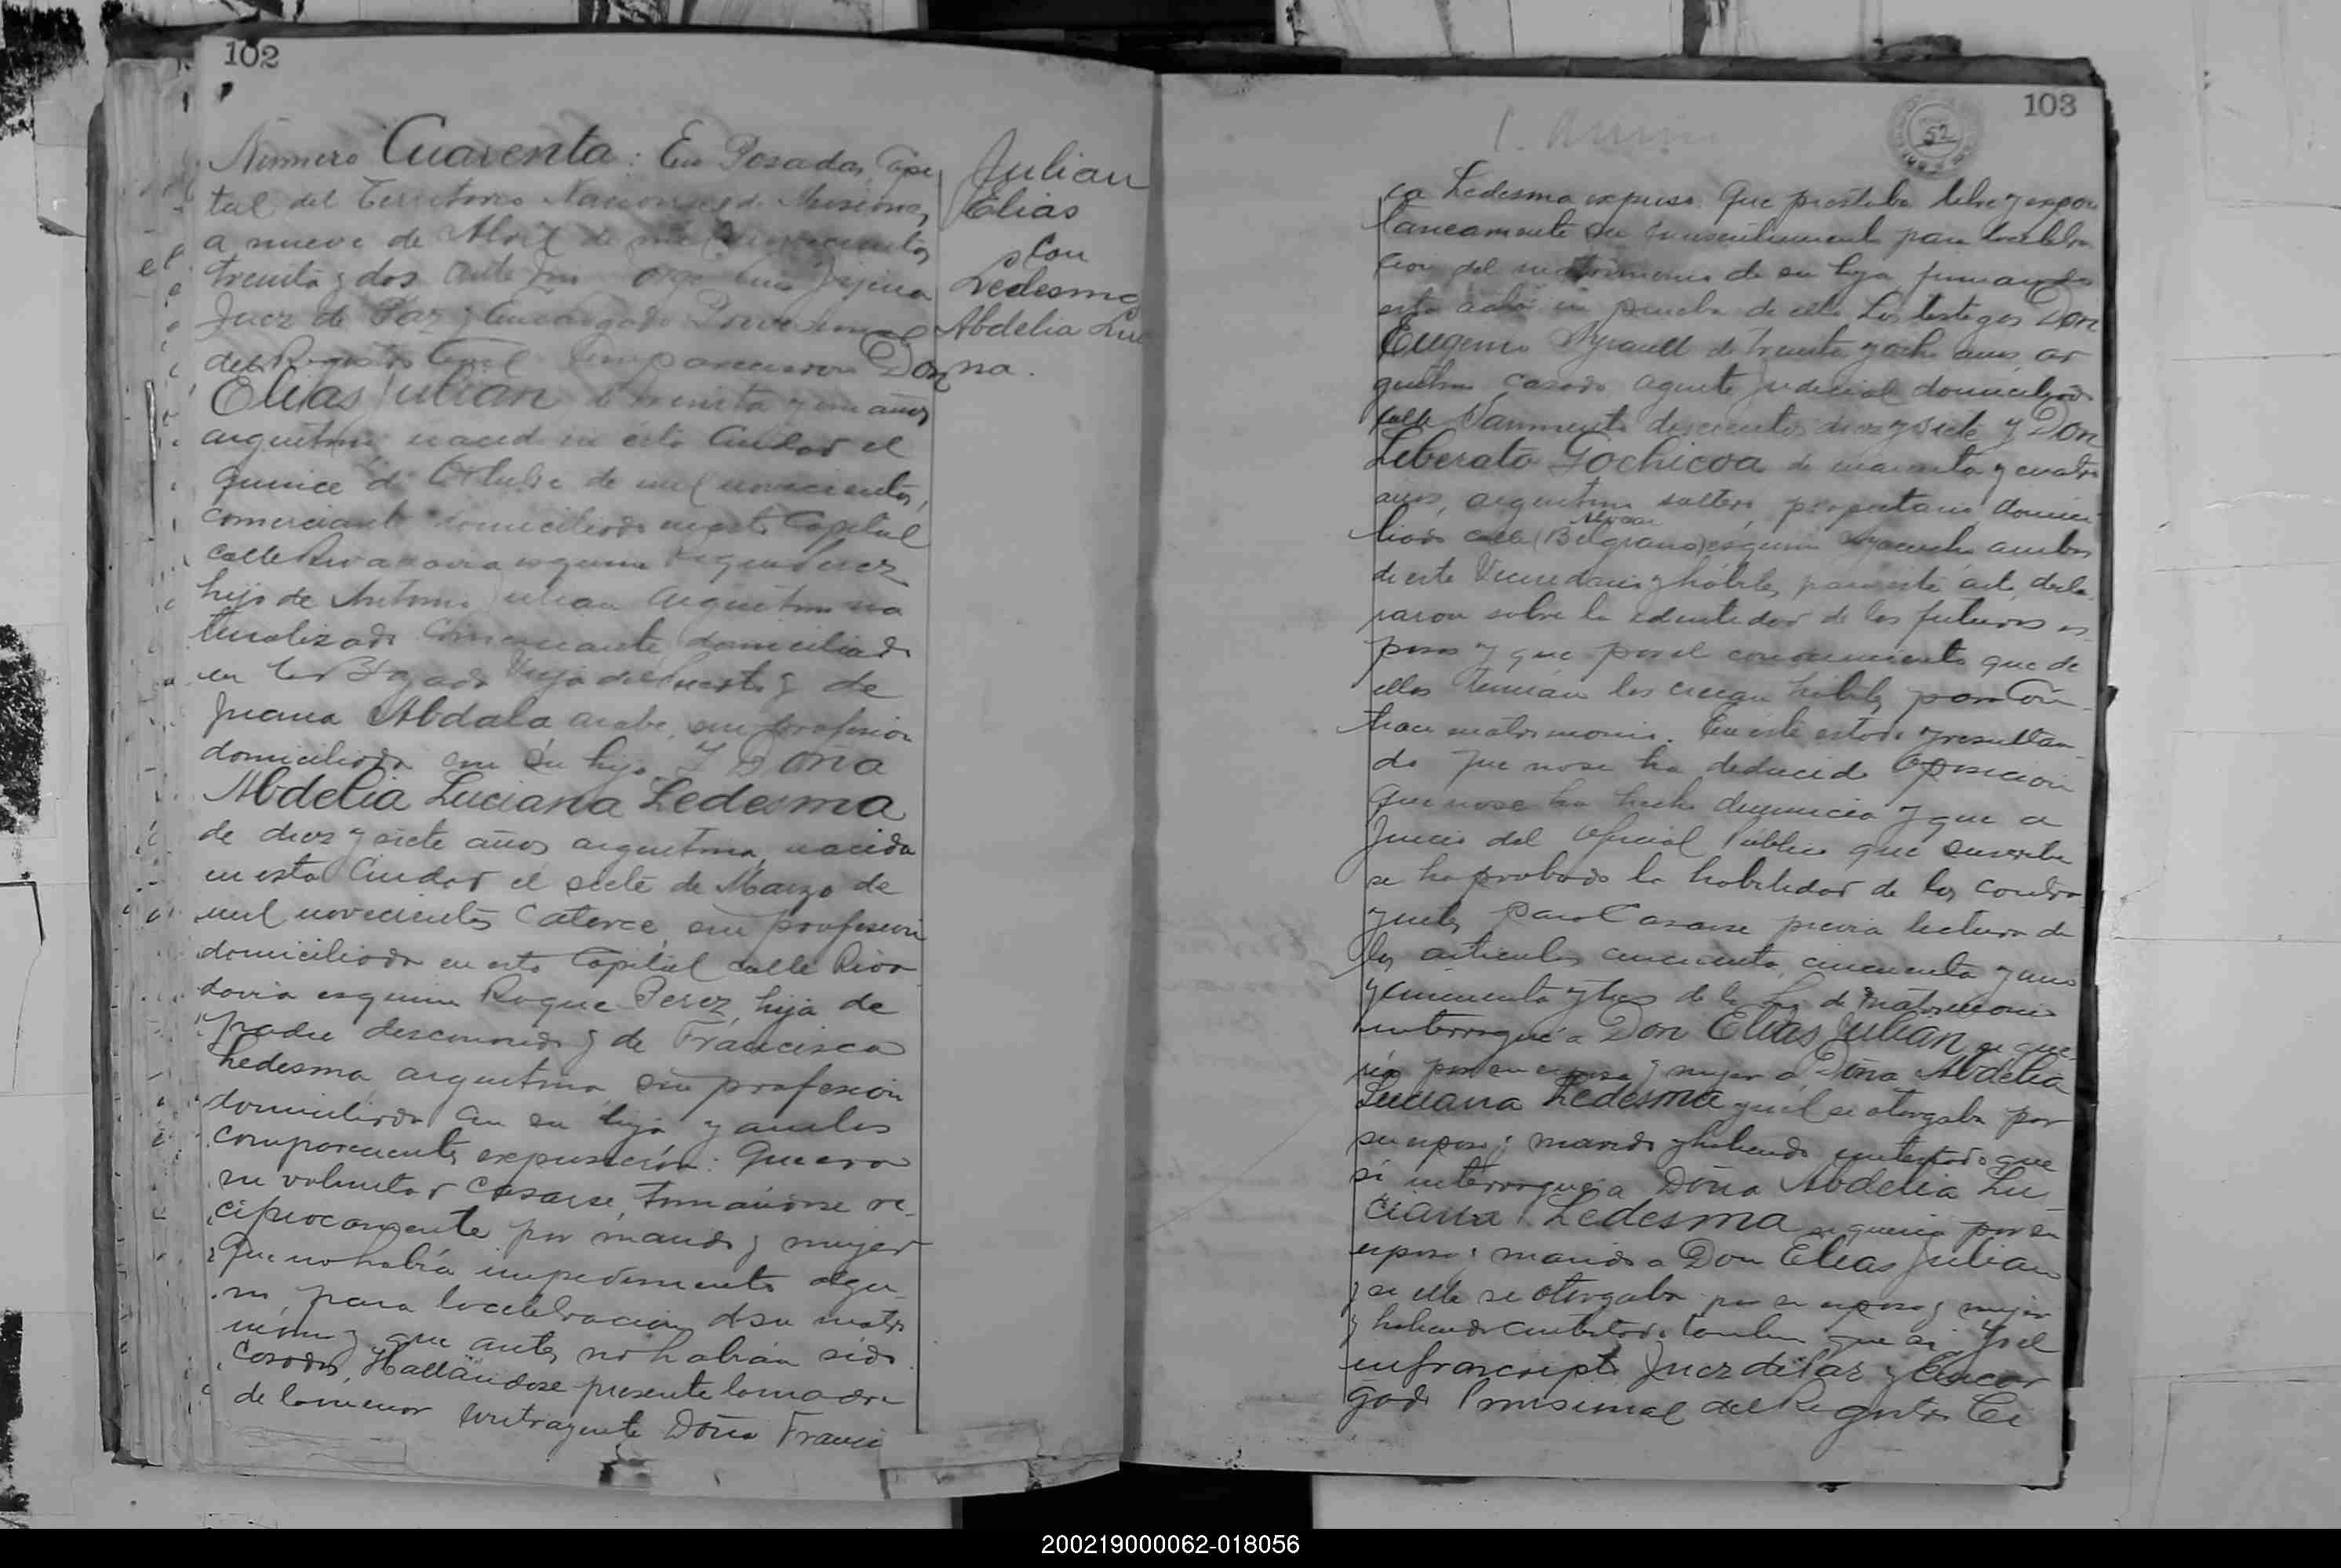 102
Número Cuarenta: En Posadas, Capi
tal del Territorio Nacional de Misiones,
a nueve de Abril de mil novecientos
treinta y dos ante mi Jorge
Juez de Paz y Encargado Provisional
del Registro Civil comparecieron Don
Elias Julian de treinta y un años
argentino, nacido en esta Ciudad el
quince de Octubre de mil novecientos,
comerciante domiciliado en esta Capital
calle Rivadavia esquina Roque Perez
hijo de Antonio Julian argentino na
turalizado comerciante, domiciliado
en y de
Juana Abdala, arabe, sin profesion
domiciliada con su hijo. Y Doña
Abdelia Luciana Ledesma
de diez y siete años argentina, nacida
en esta Ciudad el siete de Marzo de
mil novecientos catorce, sin profesion
domiciliada en esta Capital calle Riva
davia esquina Roque Perez, hija de
padre desconocido y de Francisca
Ledesma, argentina, sin profesion
domiciliada con su hija y ambos
comparecientes expusieron: Que era
su voluntad casarse, tomandose re-
ciprocamente por marido y mujer
que no habia impedimento algu-
no, para la celebracion de su matri
monio y que antes no habian sido
casados, Hallandose presente la madre
de la menor contrayente Doña Franci
Julian
Elias
con
Ledesma
Abdelia Lu
na.
103
52
ca Ledesma expuso: Que prestaba libre y espon
taneamente su consentimiento para la celebra
cion del matrimonio de su hija, firmando
esta acta en prueba de ello. Los testigos Don
Eugenio de treinta y ocho años, ar
gentino casado agente judicial domiciliado
calle Sarmiento doscientos diez y siete y Don
Liberato Gochicoa de cuarenta y cuatro
años, argentino soltero, propietario, domici
liado calle (Belgrano) esquina Ayacucho ambos
de este Vecindario y hábiles para este acto, decla
raron sobre la identidad de los futuros es-
posos y que por el conocimiento que de
ellos tenian los creian hábiles para con-
traer matrimonio. En este estado y resultan
do que no se ha deducido oposicion
que no se ha hecho denuncia y que a
juicio del Oficial Público que suscribe
se ha probado la habilidad de los contra
yentes para casarse previa lectura de
los articulos cincuenta, cincuenta y uno
y cincuenta y tres de la Ley de Matrimonio
interrogué a Don Elias Julian si que-
ria por su esposa y mujer a Doña Abdelia
Luciana Ledesma y si él se otorgaba por
su esposo y marido y habiendo contestado que
si interrogué a Doña Abdelia Lu
ciana Ledesma si queria por su
esposo y marido a Don Elias Julian
y si ella se otorgaba por su esposa y mujer
y habiendo contestado tambien que si Yo el
infrascripto Juez de Paz y Encar
gado Provisional del Registro Ci
200219000062-018056